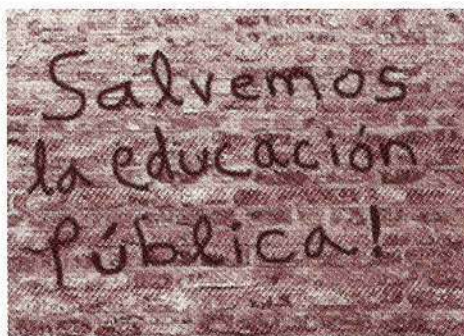 Salvemos
la educación
pública!